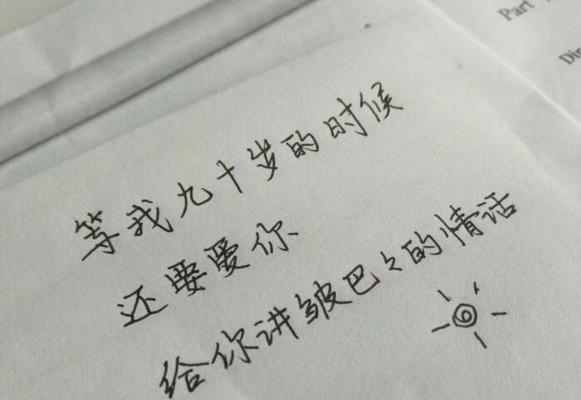 等我九十岁的时候
还要爱你
给你讲皱巴々的情话
Part